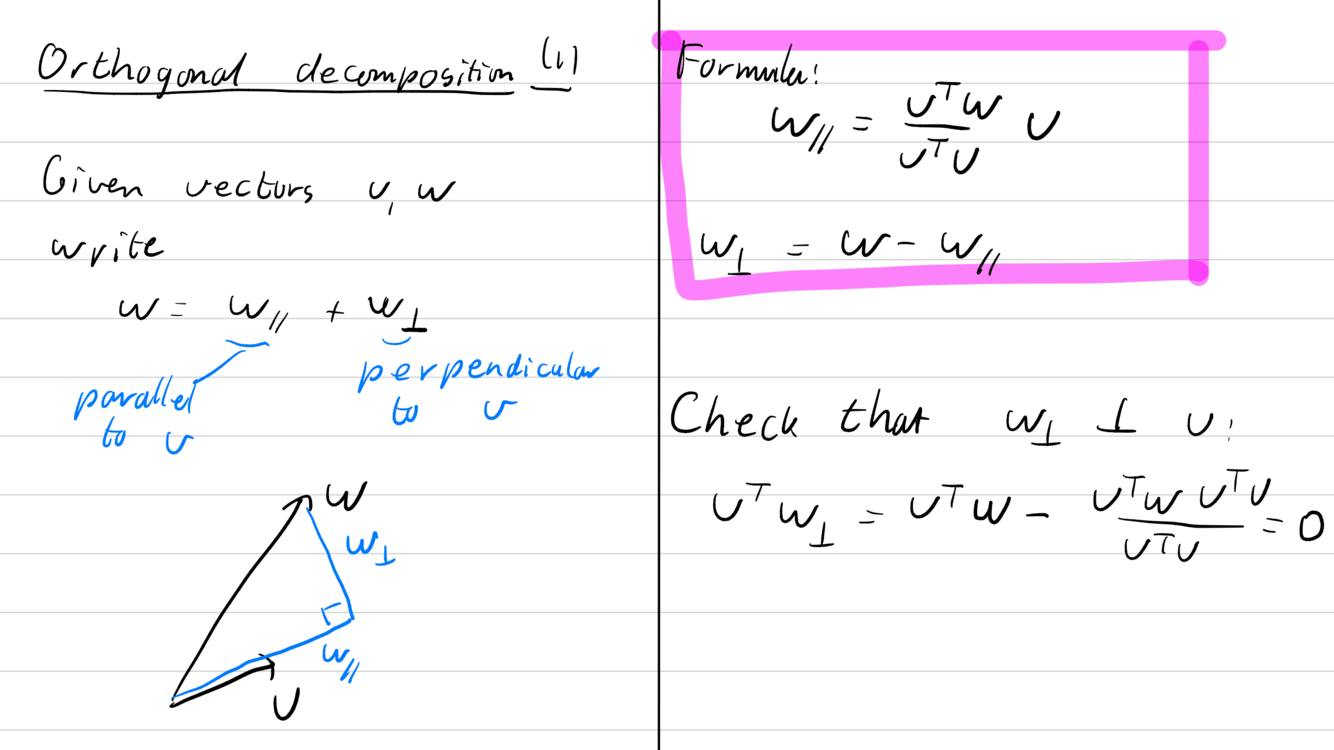 Orthogonal decomposition (1)
Given vectors v, w
write
w = w∥ + w⊥
parallel
to v
perpendicular
to v
w
w⊥
w∥
v
Formula:
w∥ = vᵀw / vᵀv v
w⊥ = w - w∥
Check that w⊥ ⊥ v:
vᵀw⊥ = vᵀw - vᵀw vᵀv / vᵀv = 0